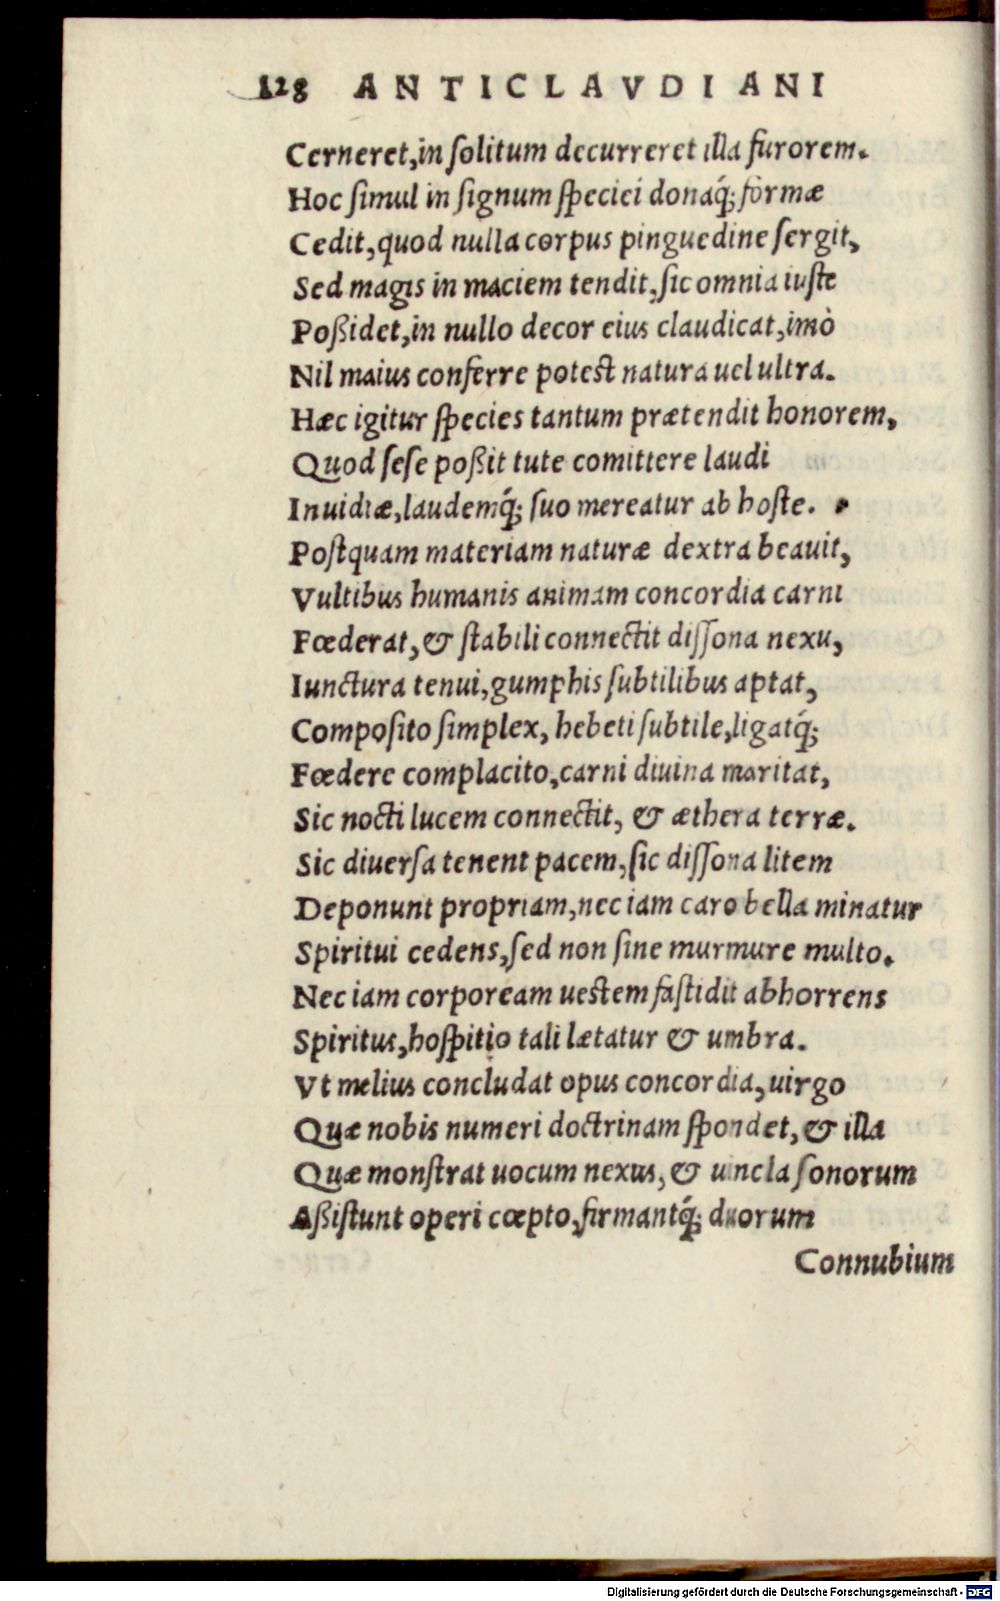 128 ANTICLAVDIANI
Cerneret,in solitum decurreret illa furorem.
Hoc simul in signum speciei donaq́; formæ
Cedit,quod nulla corpus pinguedine sergit,
Sed magis in maciem tendit,sic omnia iuste
Poßidet,in nullo decor eius claudicat,imò
Nil maius conferre potest natura uel ultra.
Hæc igitur species tantum prætendit honorem,
Quod sese poßit tute comittere laudi
Inuidiæ,laudemq́; suo mereatur ab hoste.
Postquam materiam naturæ dextra beauit,
Vultibus humanis animam concordia carni
Fœderat,& stabili connectit dissona nexu,
Iunctura tenui,gumphis subtilibus aptat,
Composito simplex, hebeti subtile,ligatq́;
Fœdere complacito,carni diuina maritat,
Sic nocti lucem connectit, & æthera terræ.
Sic diuersa tenent pacem,sic dissona litem
Deponunt propriam,nec iam caro bella minatur
Spiritui cedens,sed non sine murmure multo.
Nec iam corpoream uestem fastidit abhorrens
Spiritus,hospitio tali lætatur & umbra.
Vt melius concludat opus concordia,uirgo
Quæ nobis numeri doctrinam spondet,& illa
Quæ monstrat uocum nexus,& uincla sonorum
Aßistunt operi cœpto,firmantq́; duorum
Connubium
Digitalisierung gefördert durch die Deutsche Forschungsgemeinschaft - DFG